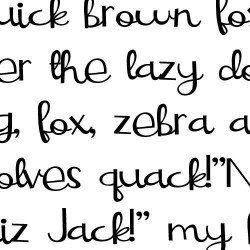 uick brown fo
er the lazy do
g, fox, zebra a
olves quack!"N
iz Jack!" my